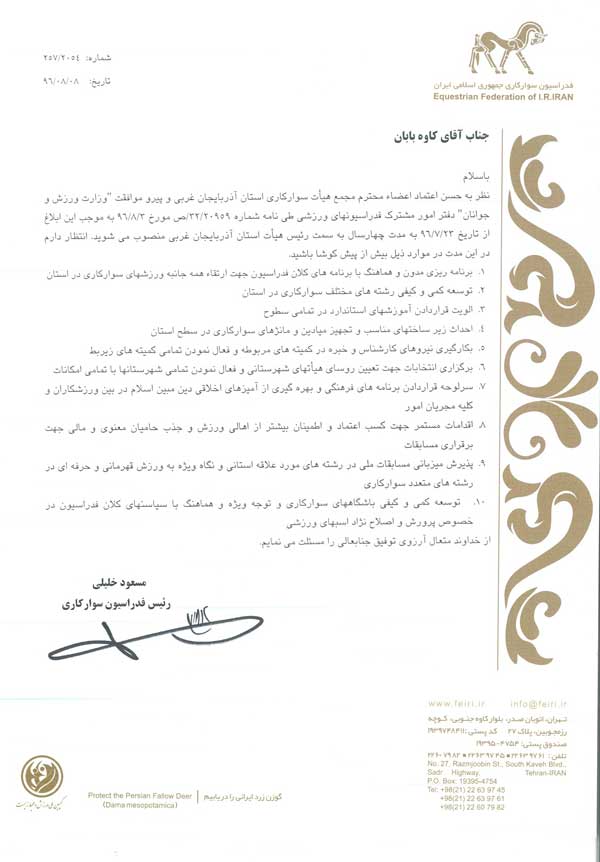 فدراسیون سوارکاری جمهوری اسلامی ایران
Equestrian Federation of I.R.IRAN
شماره: ۲۵۷/۲۰۵۴
تاریخ: ۹۶/۰۸/۰۸
جناب آقای کاوه بابان
باسلام
نظر به حسن اعتماد اعضاء محترم مجمع هیأت سوارکاری استان آذربایجان غربی و پیرو موافقت "وزارت ورزش و
جوانان" دفتر امور مشترک فدراسیونهای ورزشی طی نامه شماره ۳۲/۲۰۹۵۹/ص مورخ ۹۶/۸/۳ به موجب این ابلاغ
از تاریخ ۹۶/۷/۲۳ به مدت چهارسال به سمت رئیس هیأت استان آذربایجان غربی منصوب می شوید. انتظار دارم
در این مدت در موارد ذیل بیش از پیش کوشا باشید.
۱. برنامه ریزی مدون و هماهنگ با برنامه های کلان فدراسیون جهت ارتقاء همه جانبه ورزشهای سوارکاری در استان
۲. توسعه کمی و کیفی رشته های مختلف سوارکاری در استان
۳. الویت قراردادن آموزشهای استاندارد در تمامی سطوح
۴. احداث زیر ساختهای مناسب و تجهیز میادین و مانژهای سوارکاری در سطح استان
۵. بکارگیری نیروهای کارشناس و خبره در کمیته های مربوطه و فعال نمودن تمامی کمیته های زیربط
۶. برگزاری انتخابات جهت تعیین روسای هیأتهای شهرستانی و فعال نمودن تمامی شهرستانها با تمامی امکانات
۷. سرلوحه قراردادن برنامه های فرهنگی و بهره گیری از آمیزهای اخلاقی دین مبین اسلام در بین ورزشکاران و
کلیه مجریان امور
۸. اقدامات مستمر جهت کسب اعتماد و اطمینان بیشتر از اهالی ورزش و جذب حامیان معنوی و مالی جهت
برقراری مسابقات
۹. پذیرش میزبانی مسابقات ملی در رشته های مورد علاقه استانی و نگاه ویژه به ورزش قهرمانی و حرفه ای در
رشته های متعدد سوارکاری
۱۰. توسعه کمی و کیفی باشگاههای سوارکاری و توجه ویژه و هماهنگ با سیاسنهای کلان فدراسیون در
خصوص پرورش و اصلاح نژاد اسبهای ورزشی
از خداوند متعال آرزوی توفیق جنابعالی را مسئلت می نمایم.
مسعود خلیلی
رئیس فدراسیون سوارکاری
www.feiri.ir info@feiri.ir
تهران، اتوبان صدر، بلوار کاوه جنوبی، کوچه
رزمجویین، پلاک ۲۷ کد پستی: ۱۹۳۹۷۴۸۴۱۱
صندوق پستی: ۴۷۵۴-۱۹۳۹۵
تلفن: ۲۲۶۳۹۷۶۱ ■ ۲۲۶۳۹۷۴۵ ■ ۲۲۶۰۷۹۸۲
No. 27, Razmjoobin St., South Kaveh Blvd.,
Sadr Highway, Tehran-IRAN
P.O. Box: 19395-4754
Tel: +98(21) 22 63 97 45
+98(21) 22 63 97 61
+98(21) 22 60 79 82
Protect the Persian Fallow Deer
(Dama mesopotamica)
گوزن زرد ایرانی را دریابیم